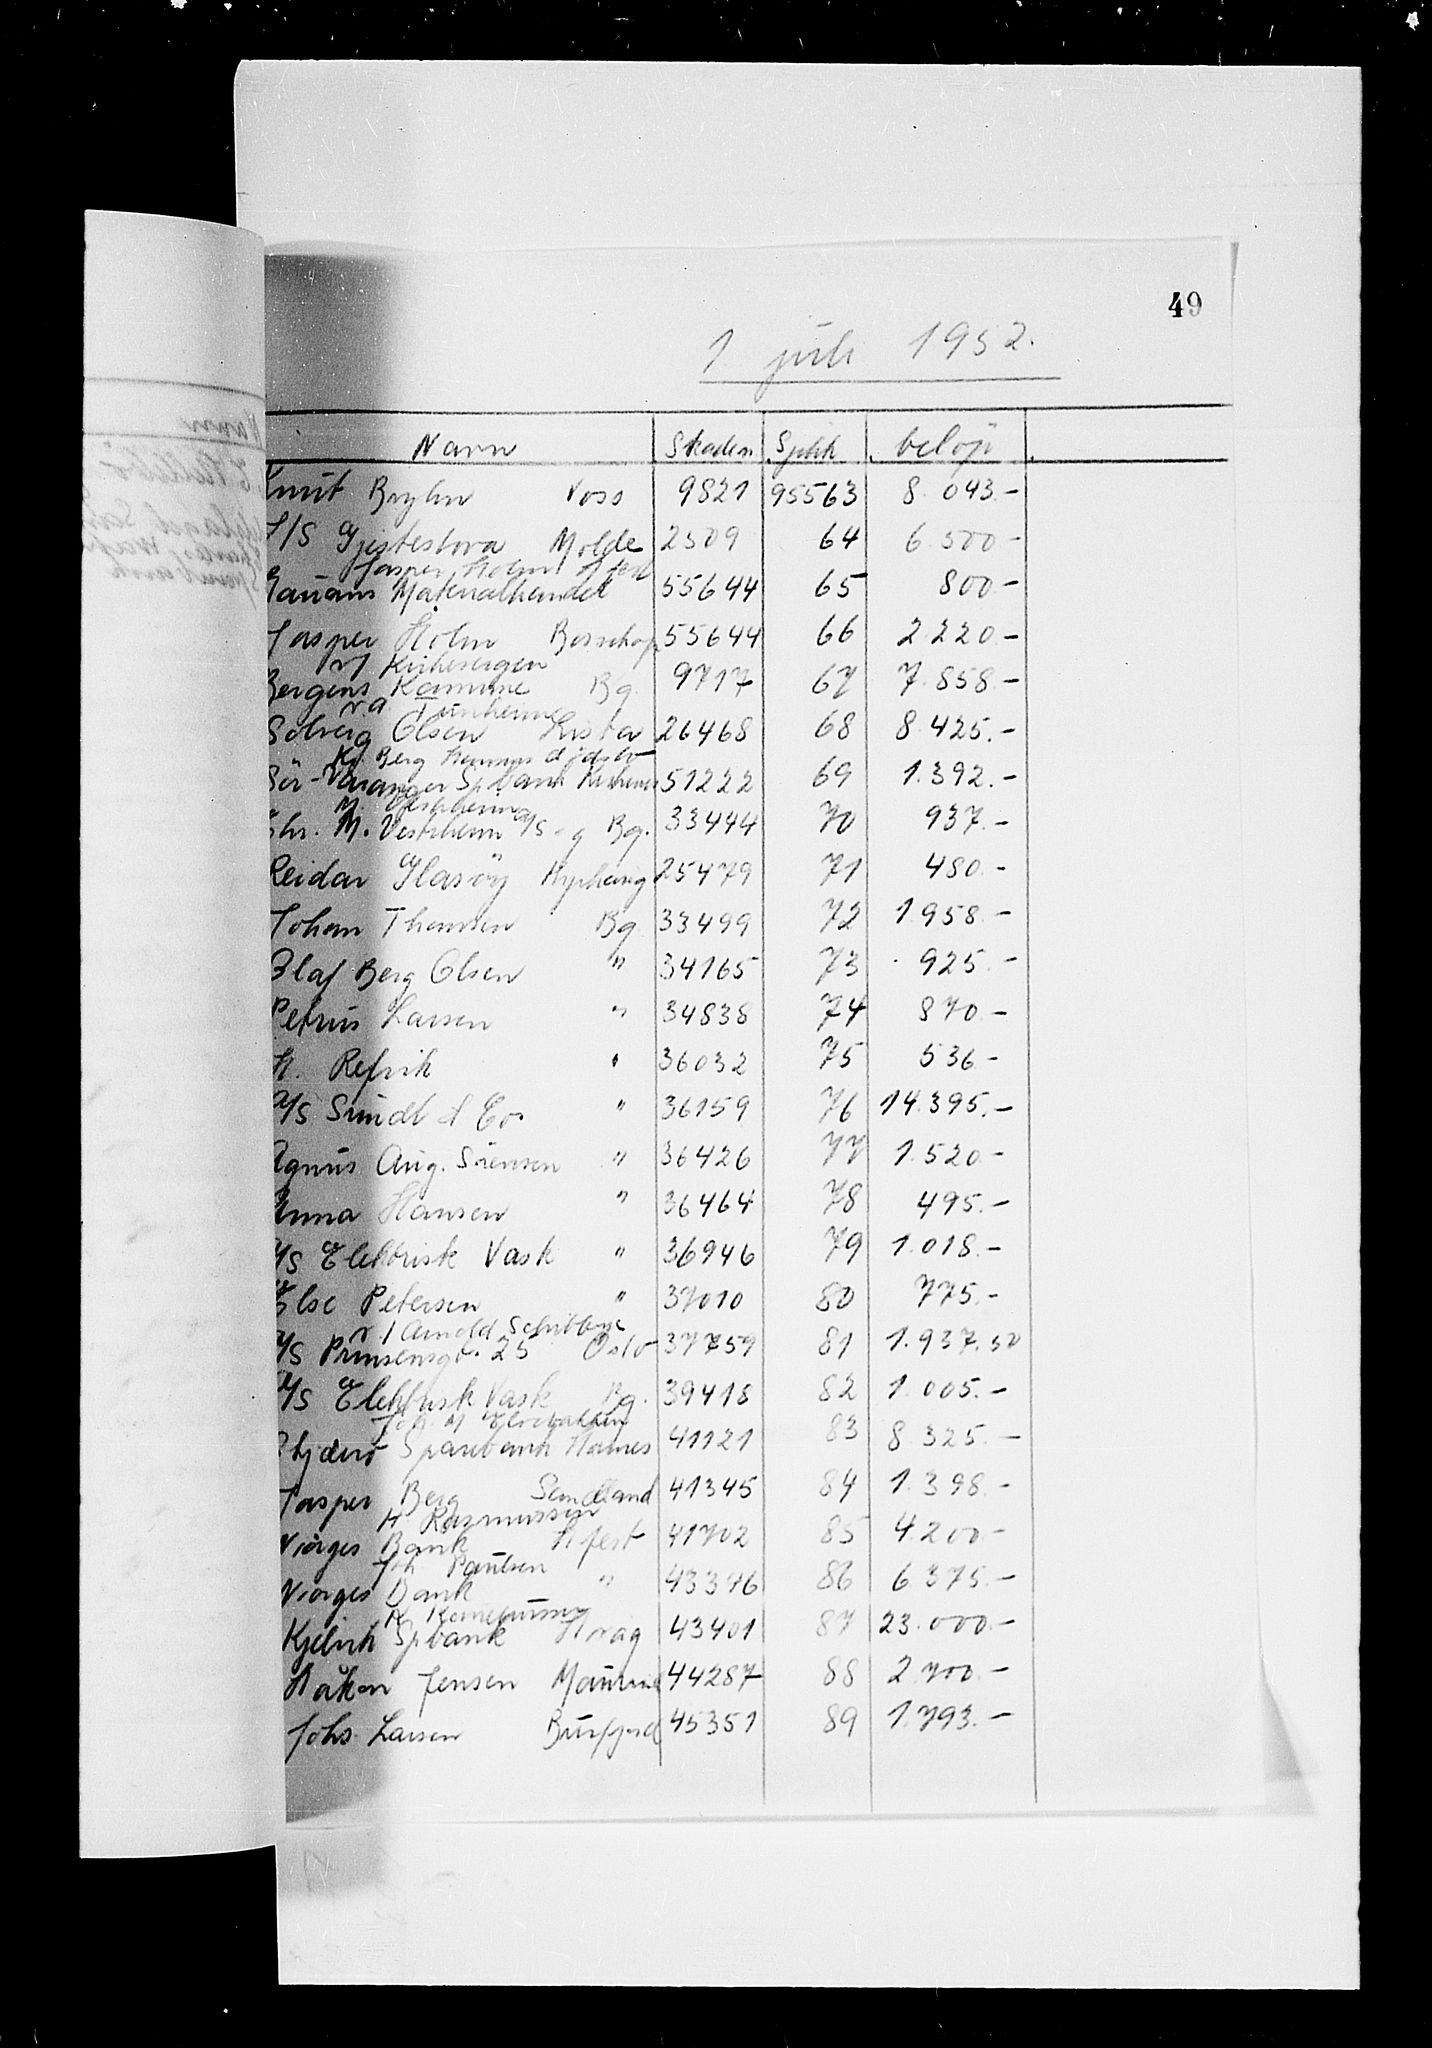 49
1 juli 1952.
Navn Skaden Sjekk beløp
Knut Voss 9821 95563 8.043.-
Gjestestova Molde 2509 64 6.500-
Jasper Holm
Materialhandel 55644 65 800.-
Jasper Holm Bossekop 55644 66 2.220.-
v/
Bergens Kommune Bg. 9717 67 7.858.-
Solveig Olsen Lista 26468 68 8.425.-
Berg
Sör-Varanger Sp.bank Kirkenes 51222 69 1.392.-
Chr. M. Vestrheim A/S Bg. 33444 70 937.-
Reidar Glasöy 25479 71 480.-
Johan Thomsen Bg 33499 72 1.958.-
Olaf Berg Olsen " 34165 73 925.-
Petrus Larsen " 34838 74 870.-
H. Refvik " 36032 75 536.-
A/S Sundt & Co " 36159 76 14.395.-
Agnus Aug. Sörensen " 36426 77 1.520.-
Anna Hansen " 36464 78 495.-
A/S Elektrisk Vask " 36946 79 1.018.-
Else Petersen " 37010 80 775.-
v/ Arnold
A/S Prinsensgt. 25 Oslo 37757 81 1.937.50
A/S Elektrisk Vask Bg. 39418 82 1.005.-
Sparebank Hamnes 41121 83 8.325.-
Jasper Berg Sendland 41345 84 1.398.-
H Rasmussen
Norges Bank H.fest 41702 85 4.200.-
Joh. Paulsen
Norges Bank " 43376 86 6.375.-
Kjelvik Spbank 43401 87 23.000.-
Håkon Jensen 44287 88 2.700.-
Johs. Larsen Burfjord 45351 89 1.793.-